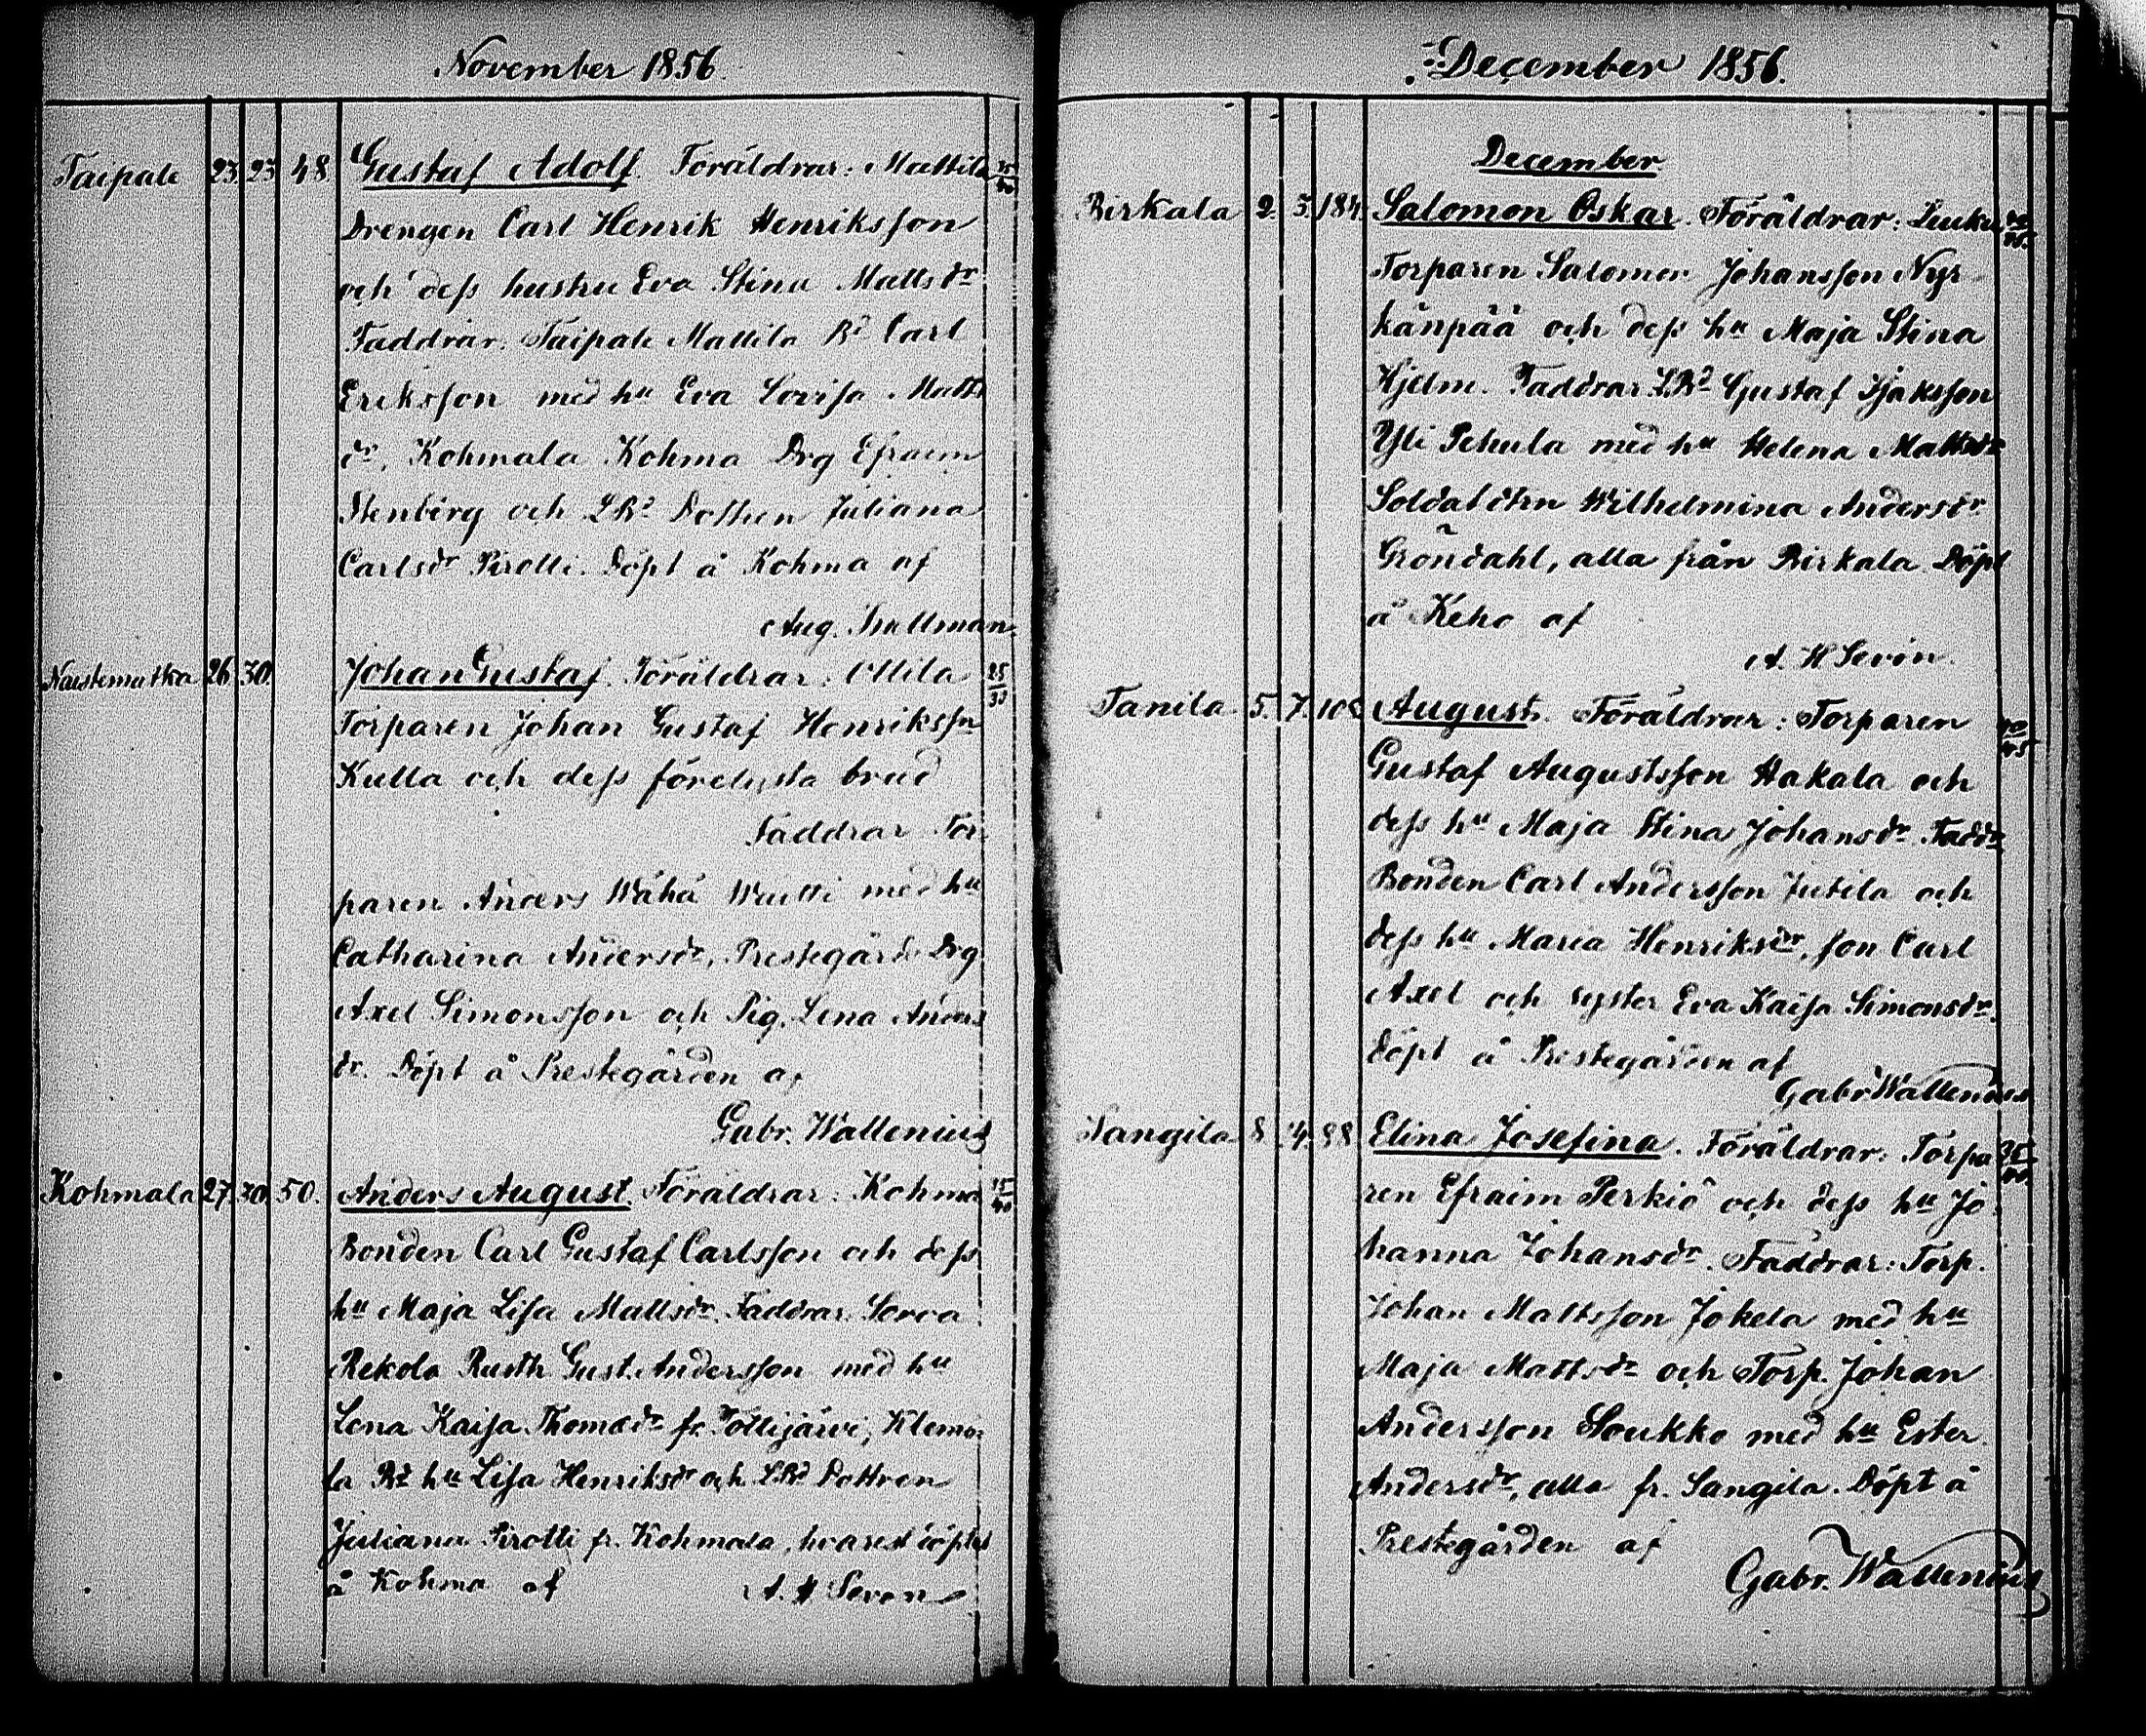 November 1856.
Taipale 23. 23 48 Gustaf Adolf. Föräldrar: Mattila 35/40
Drengen Carl Henrik Henriksson
och dess hustru Eva Stina Mattsdr
Faddrar: Taipale Mattila Bd Carl
Eriksson med hu Eva Lovisa Matts
dr, Kohmala Kohma Drg Efraim
Stenberg och LBd Dottren Juliana
Carlsdr Pirotti. Döpt å Kohma af
Aug. Trullman.
Naistematka 26. 30. Johan Gustaf. Föräldrar: Ottila 25/30
Torparen Johan Gustaf Henrikssn
Kulla och dess förelysta brud
Faddrar Tor
paren Anders Wähä Wutti med hu
Catharina Andersdr, Prestegårds Drg
Axel Simonsson och Pig. Lena Anders
dr. Döpt å Prestegården af
Gabr. Wallenius
Kohmala 27. 30. 50. Anders August. Föräldrar: Kohma 35/40
Bonden Carl Gustaf Carlsson och dess
hu Maja Lisa Mattsdr. Faddrar:
Rekola Rusth Gust. Andersson med hu
Lena Kaisa Thomasdr fr. Tottijärvi, Klemo-
la Bd hu Lisa Henriksdr och LBd Dottren
Juliana Pirotti fr. Kohmala, hvarest döptes
å Kohma af A. H Sevon
December 1856.
December.
Birkala 2. 3. 184. Salomon Oskar. Föräldrar: 40/45
Torparen Salomon Johansson Nyr-
känpää och dess hu Maja Stina
Hjelm. Faddrar LBd Gustaf Isaksson
Yli Pehula med hu Helena Mattsdr
Soldatdtrn Wilhelmina Andersdr
Gröndahl, alla från Birkala. Döpt
å Keho af
A. H Sevon.
Tanila 5. 7. August. Föräldrar: Torparen 40/45
Gustaf Augustsson Hakala och
dess hu Maja Stina Johansdr. Faddr
Bonden Carl Andersson Jutila och
dess hu Maria Henriksdr, son Carl
Axel och syster Eva Kaisa Simonsdr.
Döpt å Prestegården af
Gabr Wallenius
Sangila 8. 14. 98 Elina Josefina. Föräldrar: Torpa
ren Efraim Perkiö och dess hu Jo-
hanna Johansdr. Faddrar: Torp.
Johan Mattsson Jokela med hu
Maja Mattsdr och Torp. Johan
Andersson Soukko med hu Ester
Andersdr, alla fr. Sangila. Döpt å
Prestegården af
Gabr. Wallenius